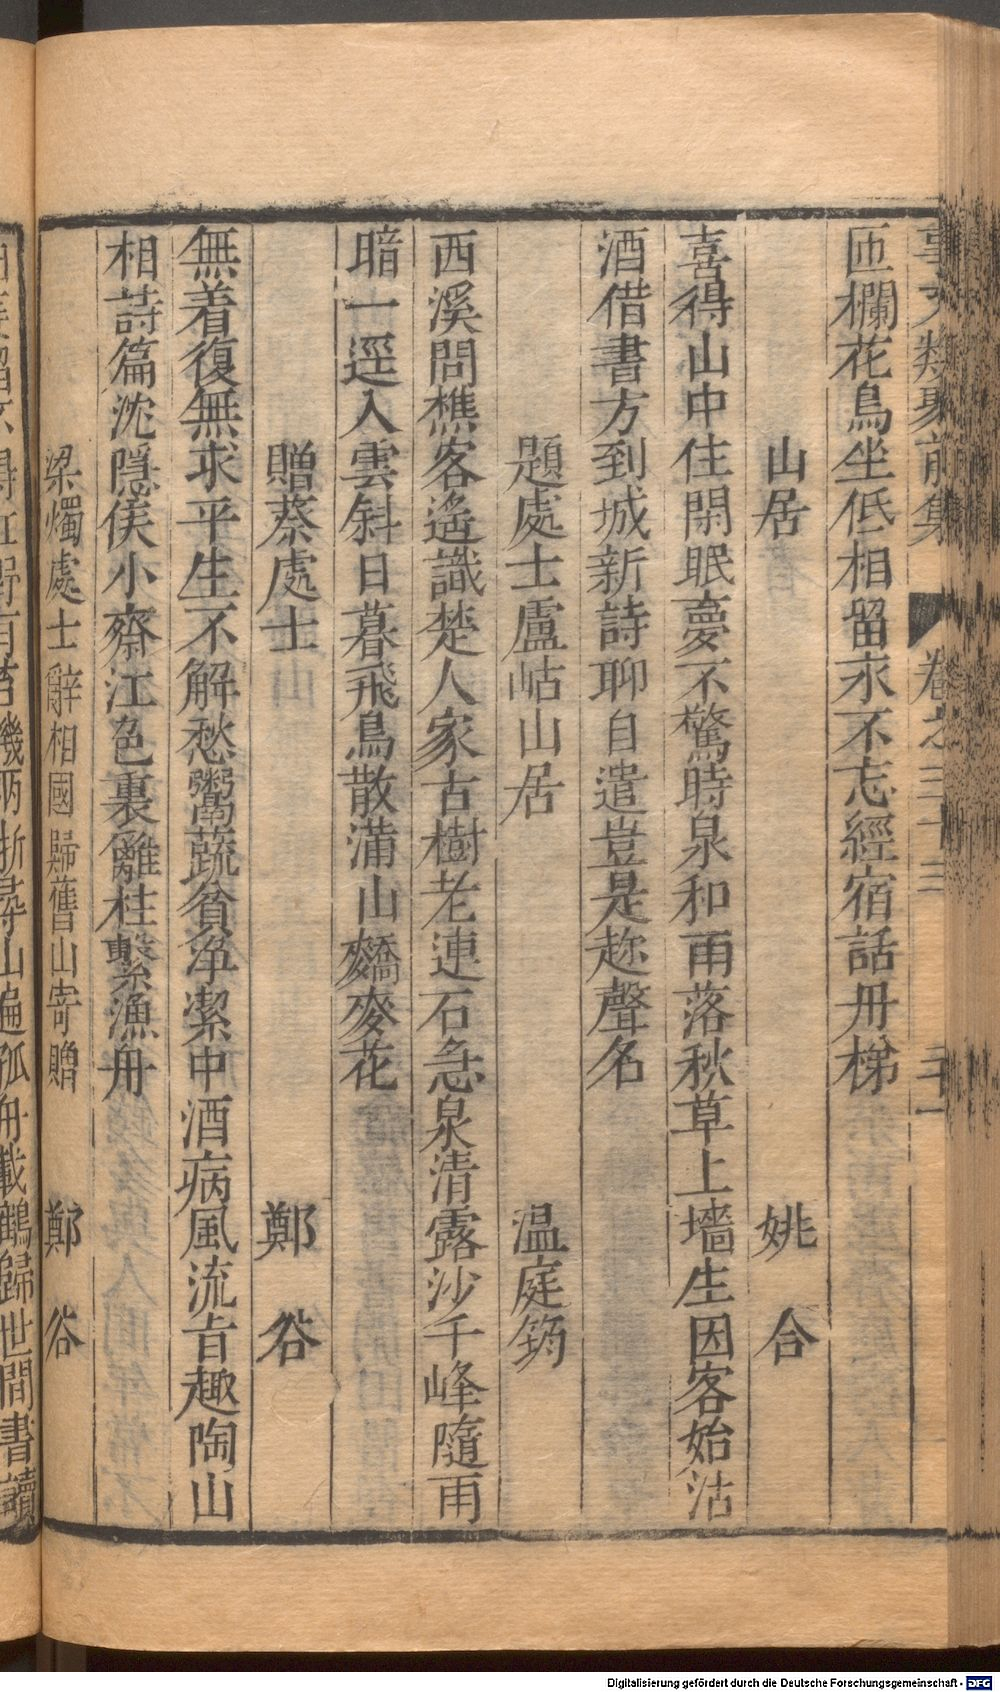 事文類聚前集 卷之三十三 二十一
匝欄花鳥坐低相留求不忘經宿話丹梯
山居 姚 合
喜得山中住閑眠夢不驚時泉和雨落秋草上墻生因客始沽
酒借書方到城新詩聊自遣豈是趂聲名
題處士盧岵山居 温庭筠
西溪問樵客遙識楚人家古樹老連石急泉清露沙千峰隨雨
暗一逕入雲斜日暮飛鳥散蒲山麰麥花
贈蔡處士 鄭 谷
無着復無求平生不解愁鬻蔬貧净潔中酒病風流旨趣陶山
相詩篇沈隱侯小齋江色裏籬柱繫漁舟
梁燭處士辭相國歸舊山寄贈 鄭 谷
兩浙尋山遍孤舟載鶴歸世間書讀
Digitalisierung gefördert durch die Deutsche Forschungsgemeinschaft - DFG